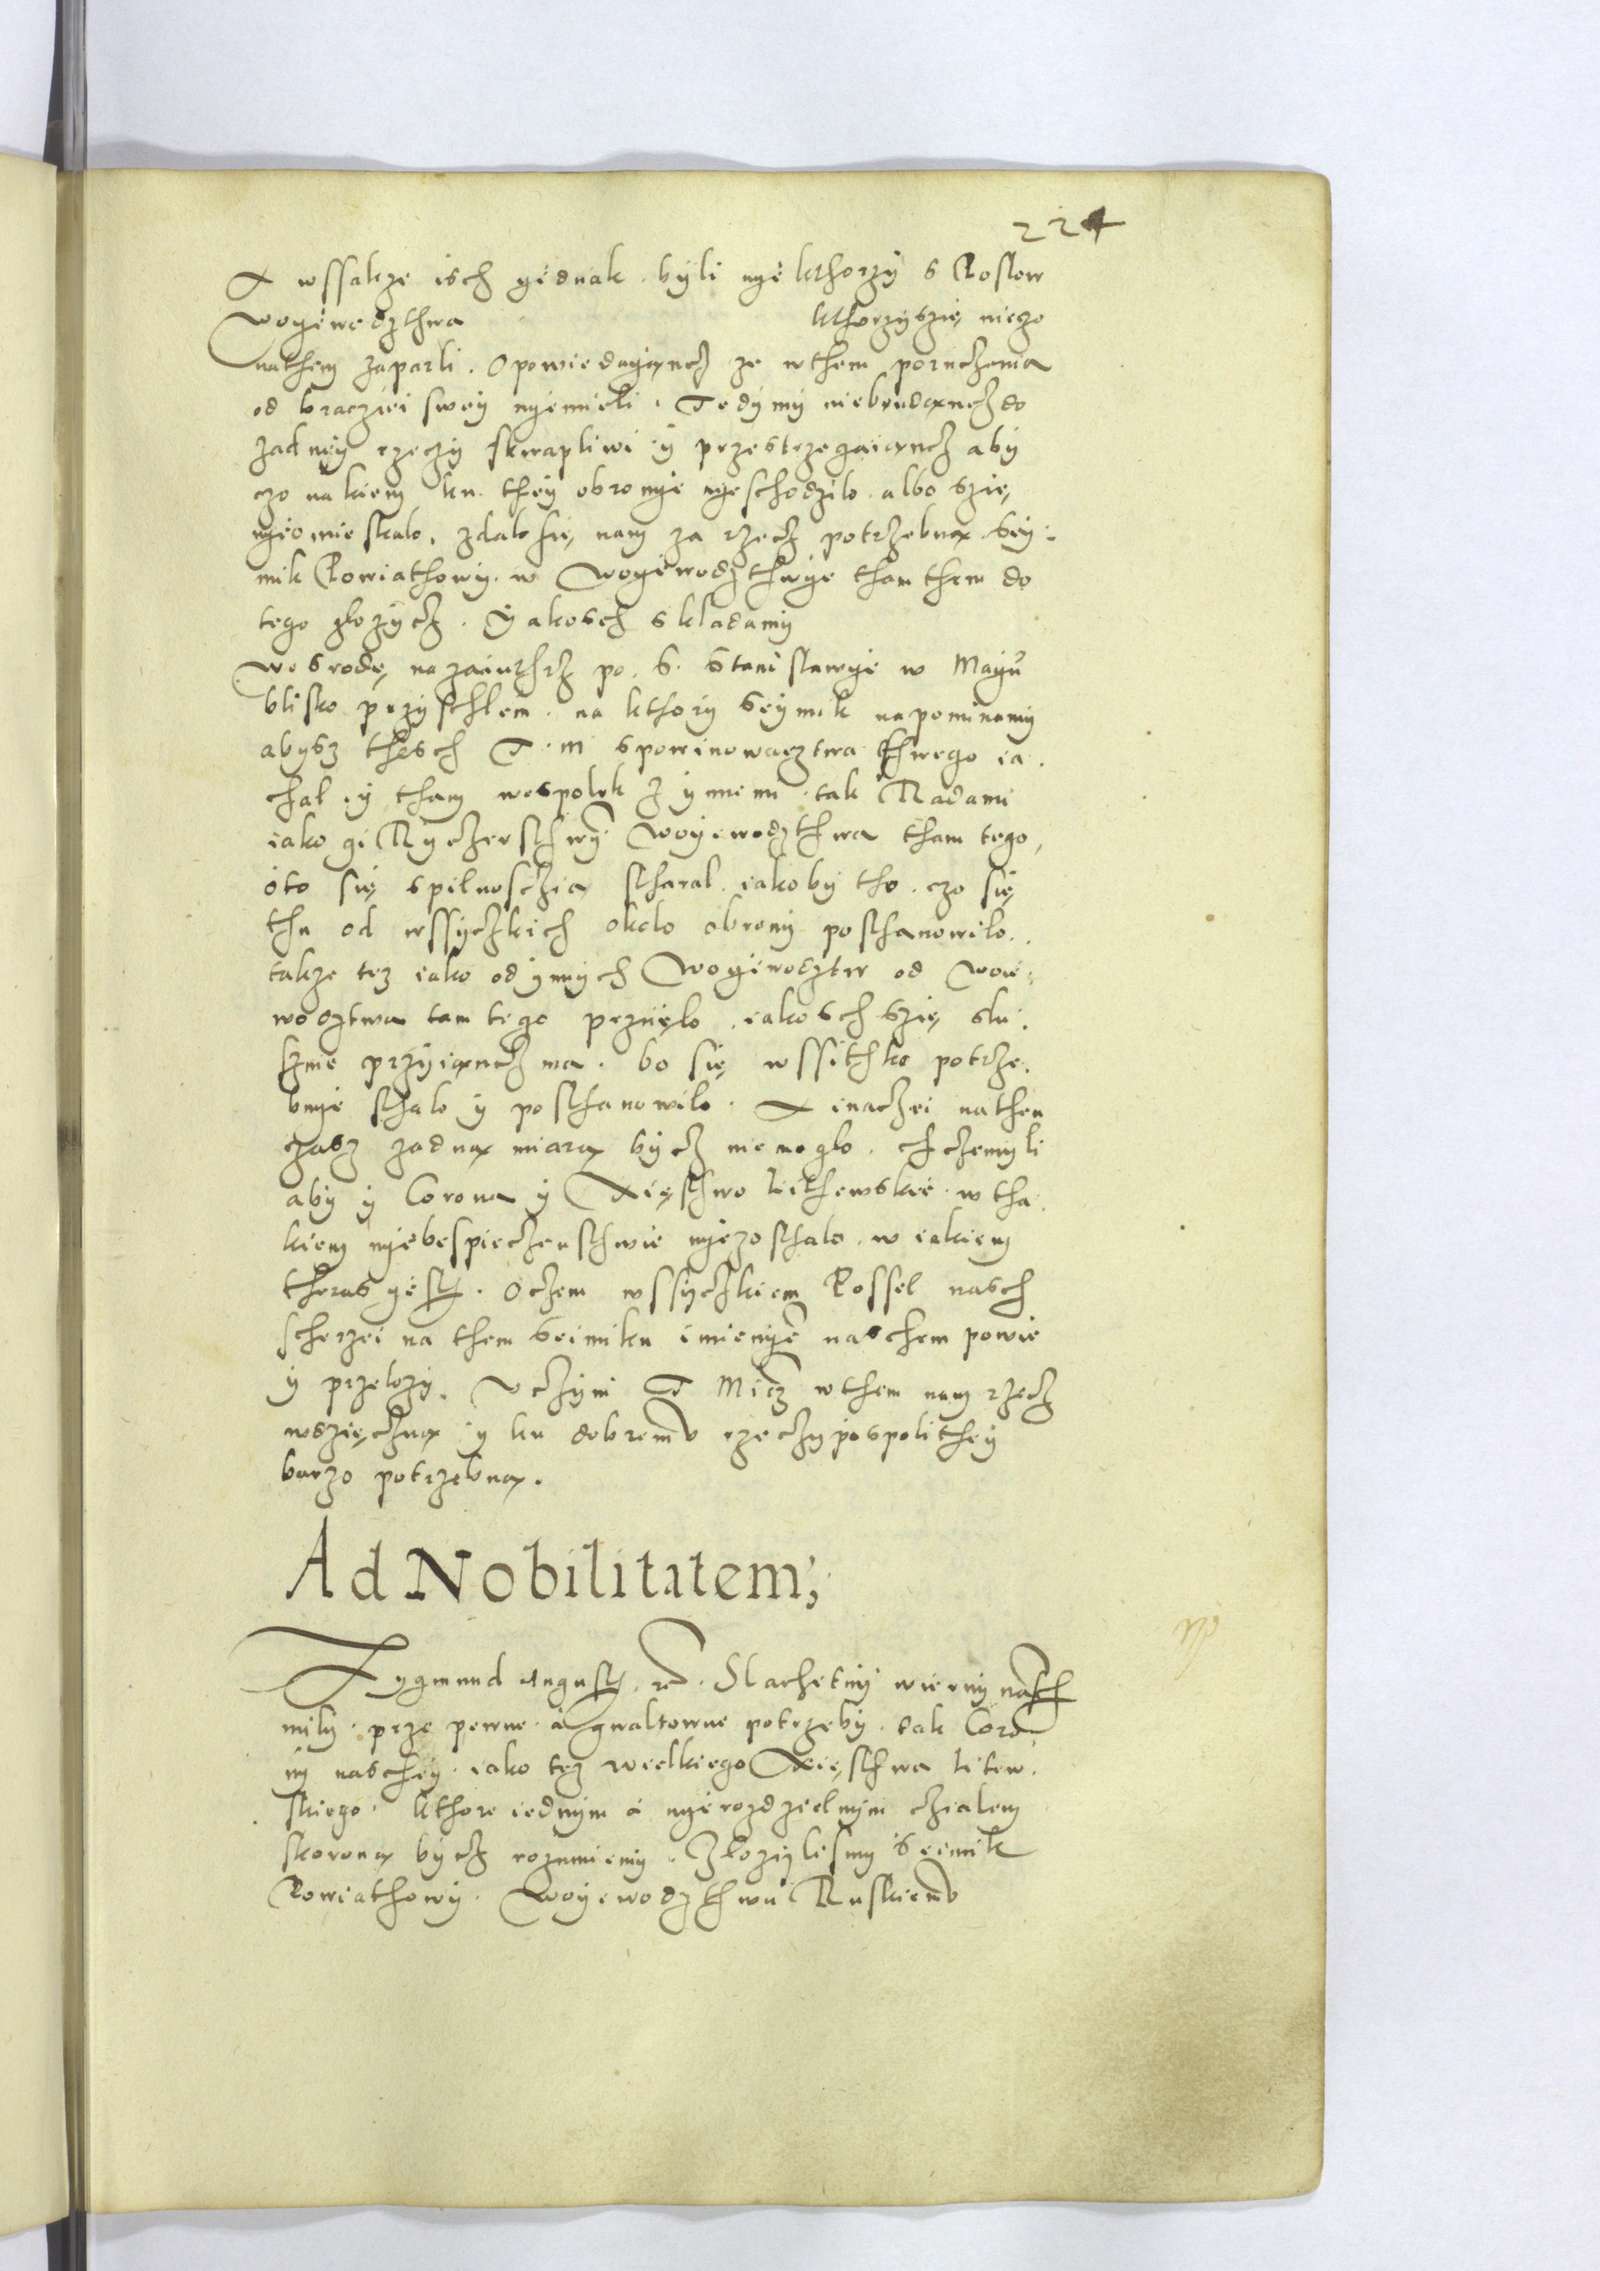 224
A wssakze isch gednak byli nyekthorzy s Posłow
Wogewodzthwa kthorzy szię nieczo
nathem zaparli. Opowiedayąncz ze wthem poruczenia
od bracziei swey nyemieli. Tedy my niebendąncz do
zadney rzeczy skwapliwi y przestrzegaiąncz aby
czo nakiem ku they obronye nyeschodzilo albo szię
nyeomieskalo, zdalo się nam za rzecz potrzebną sey:
mik Powiathowy w Wogewodzthwye thamthem do
tego złozycz. Yakosch skladamy
we srodę nazaiuthrz po S. Stanisławye w Mayu
blisko przyschlem. na kthory seymik napominamy
abysz thesch T. M spowinowacztwa thwego ia.
chal y tham wespolek z ynnemi tak Radami
iako gi Ryczerschwem Woyewodzthwa tham tego,
oto się spilnosczią stharal iakoby tho czo się
thu od wssyczkich okolo obrony posthanowilo.
takze tez iako odynnych Wogewodztw od Woie:
wodztwa tam tego przyięlo iakosch szię slu:
szme przyiąncz ma. bo się wssithko potrze.
bnye sthalo y posthanowilo. A inaczei nathen
czasz zadną miarą bycz niemoglo. chczemyli
aby y Corona y Xięsthwo Lithewskie w tha
kiem nyebespieczensthwie nyezosthalo w iakiem
theras gesth. Oczem wssyczkiem Possel nasch
scherzei na them seimiku imienyem naschem powie
y przelozy. Uczyni T Micz wthem nam rzecz
wdzięczną y ku dobremu rzeczypospolithey
barzo potrzebną.
Ad Nobilitatem;
Zygmund August. Slachetny wierny nasch
mily. prze pewne a gwaltowne potrzeby tak Coro
ny naschey iako tez wielkiego Xięsthwa litew
skiego. kthore iednym a nyerozdzielnym czialem
skoroną bycz rozumiemy. Złozylismy seimik
Powiathowy Woyewodzthwu Ruskiemu